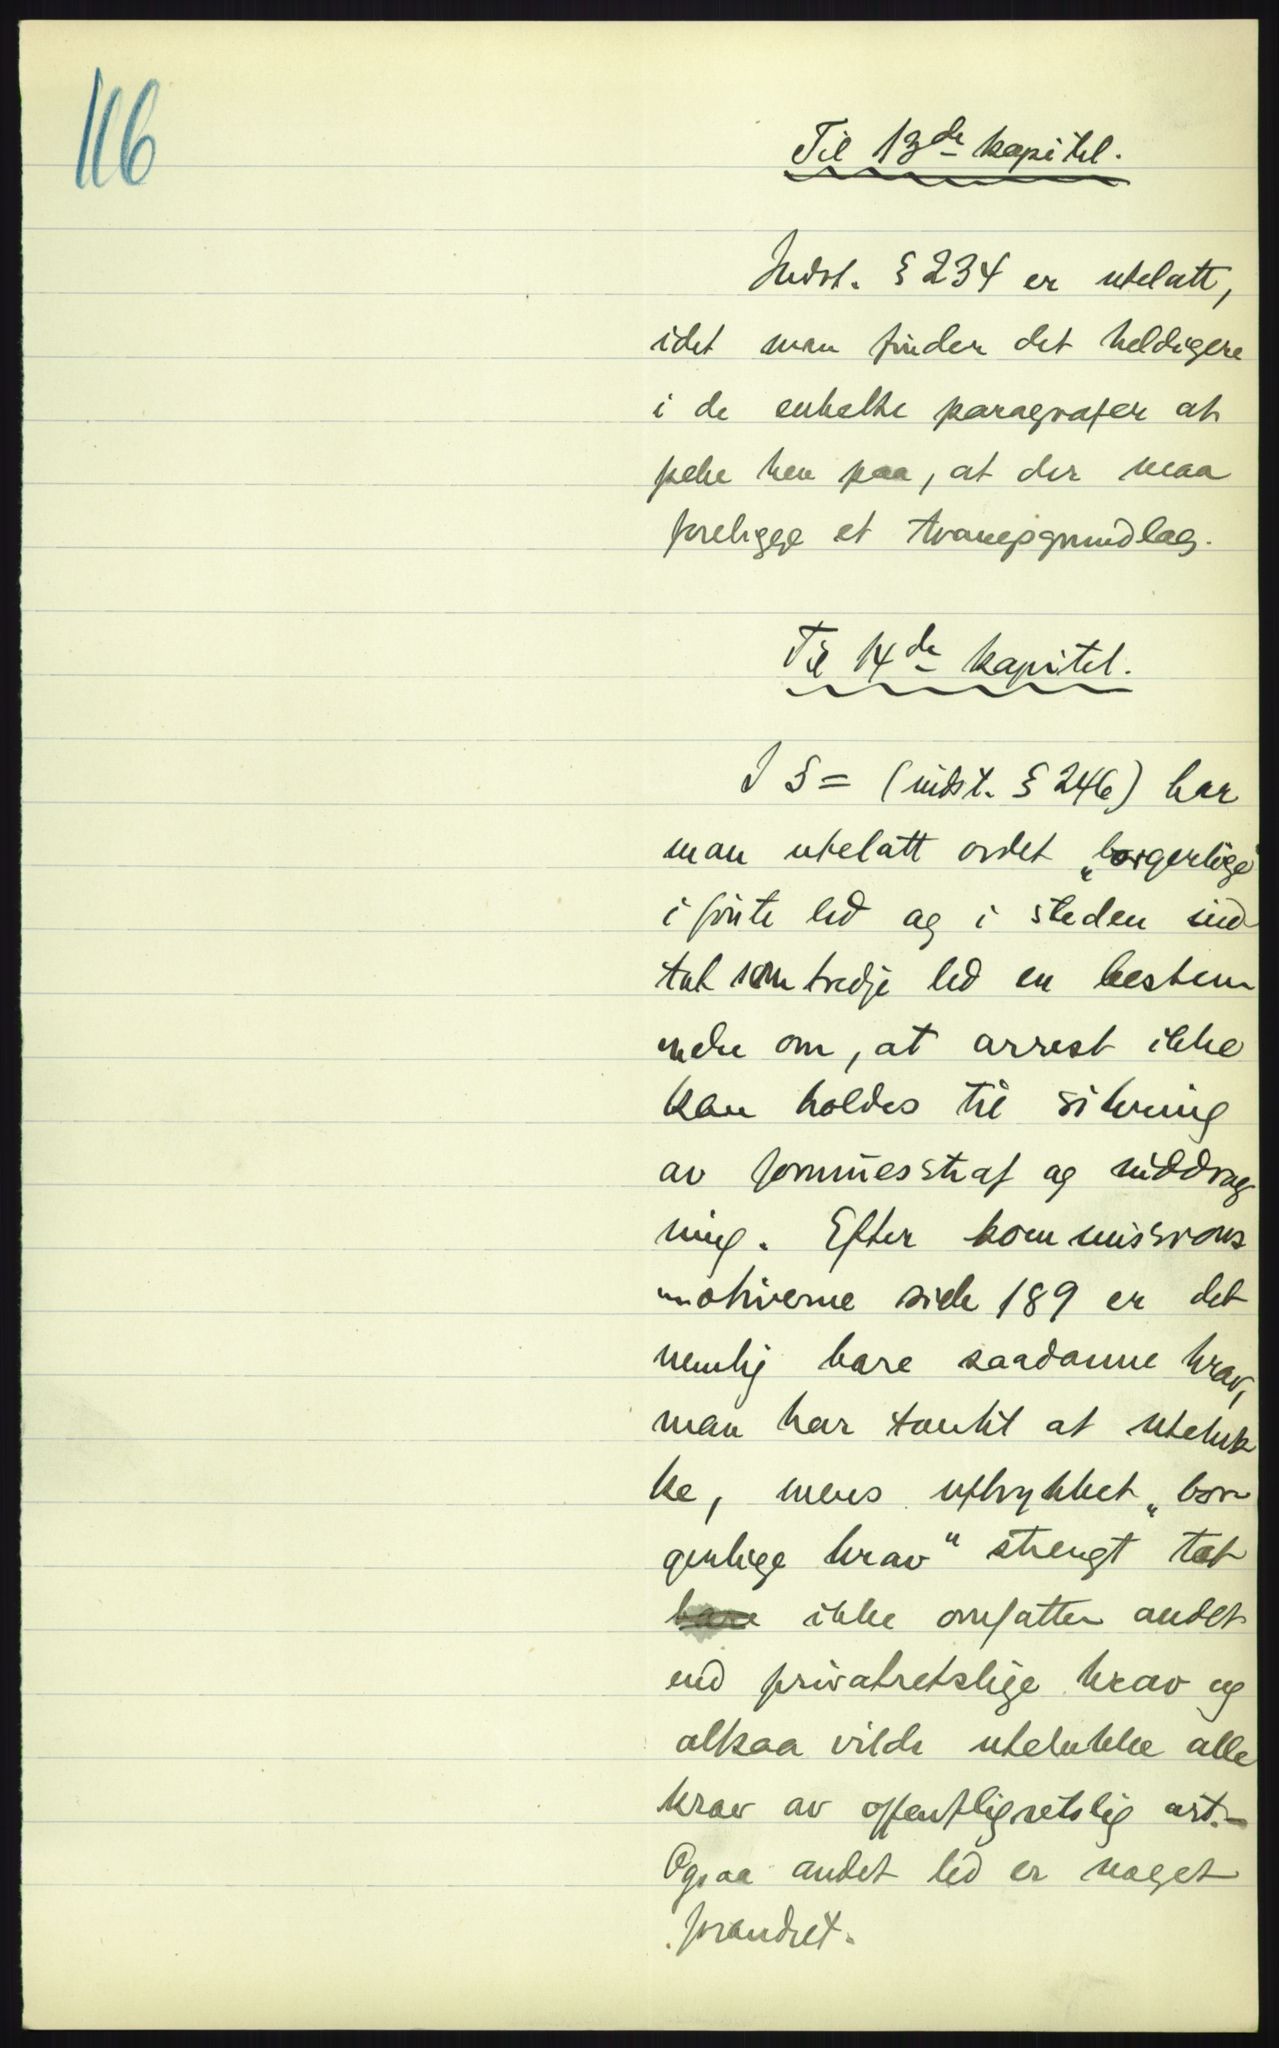 116
Til 13de kapitel.
Indst. § 234 er utelatt,
idet man finder det heldigere
i de enkelte paragrafer at
peke hen paa, at der maa
foreligge et tvangsgrundlag.
Til 14de kapitel.
I § = (indst. § 246) har
man utelatt ordet „borgerlige"
i første led og i steden ind
tat som tredje led en bestem
melse om, at arrest ikke
kan holdes til sikring
av formuesstraf og inddrag
ning. Efter kommissions
motiverne side 189 er det
nemlig bare saadanne krav,
man har tænkt at uteluk
ke, mens uttrykket „bor
gerlige krav" strengt tat
bare ikke omfatter andet
end privatretslige krav og
altsaa vilde utelukke alle
krav av offentligretslig art.—
Ogsaa andet led er noget
forandret.